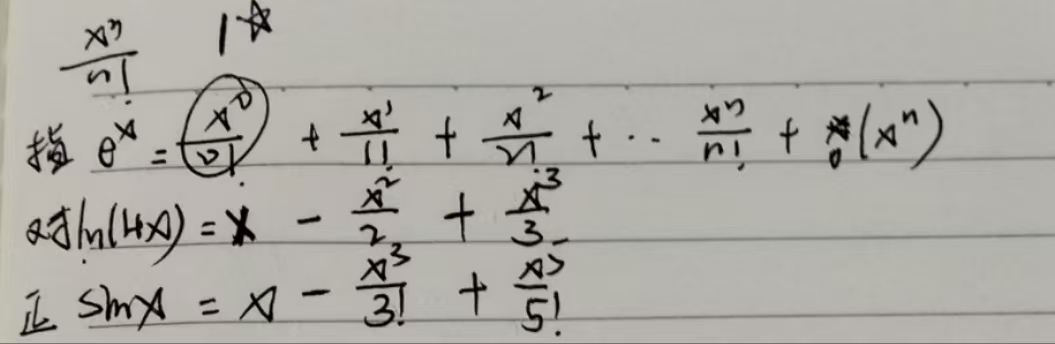 x^n/n! 1☆
指 e^x = x^0/0! + x^1/1! + x^2/2! + ·· x^n/n! + o(x^n)
对 ln(1+x) = x - x^2/2 + x^3/3
正 sinx = x - x^3/3! + x^5/5!